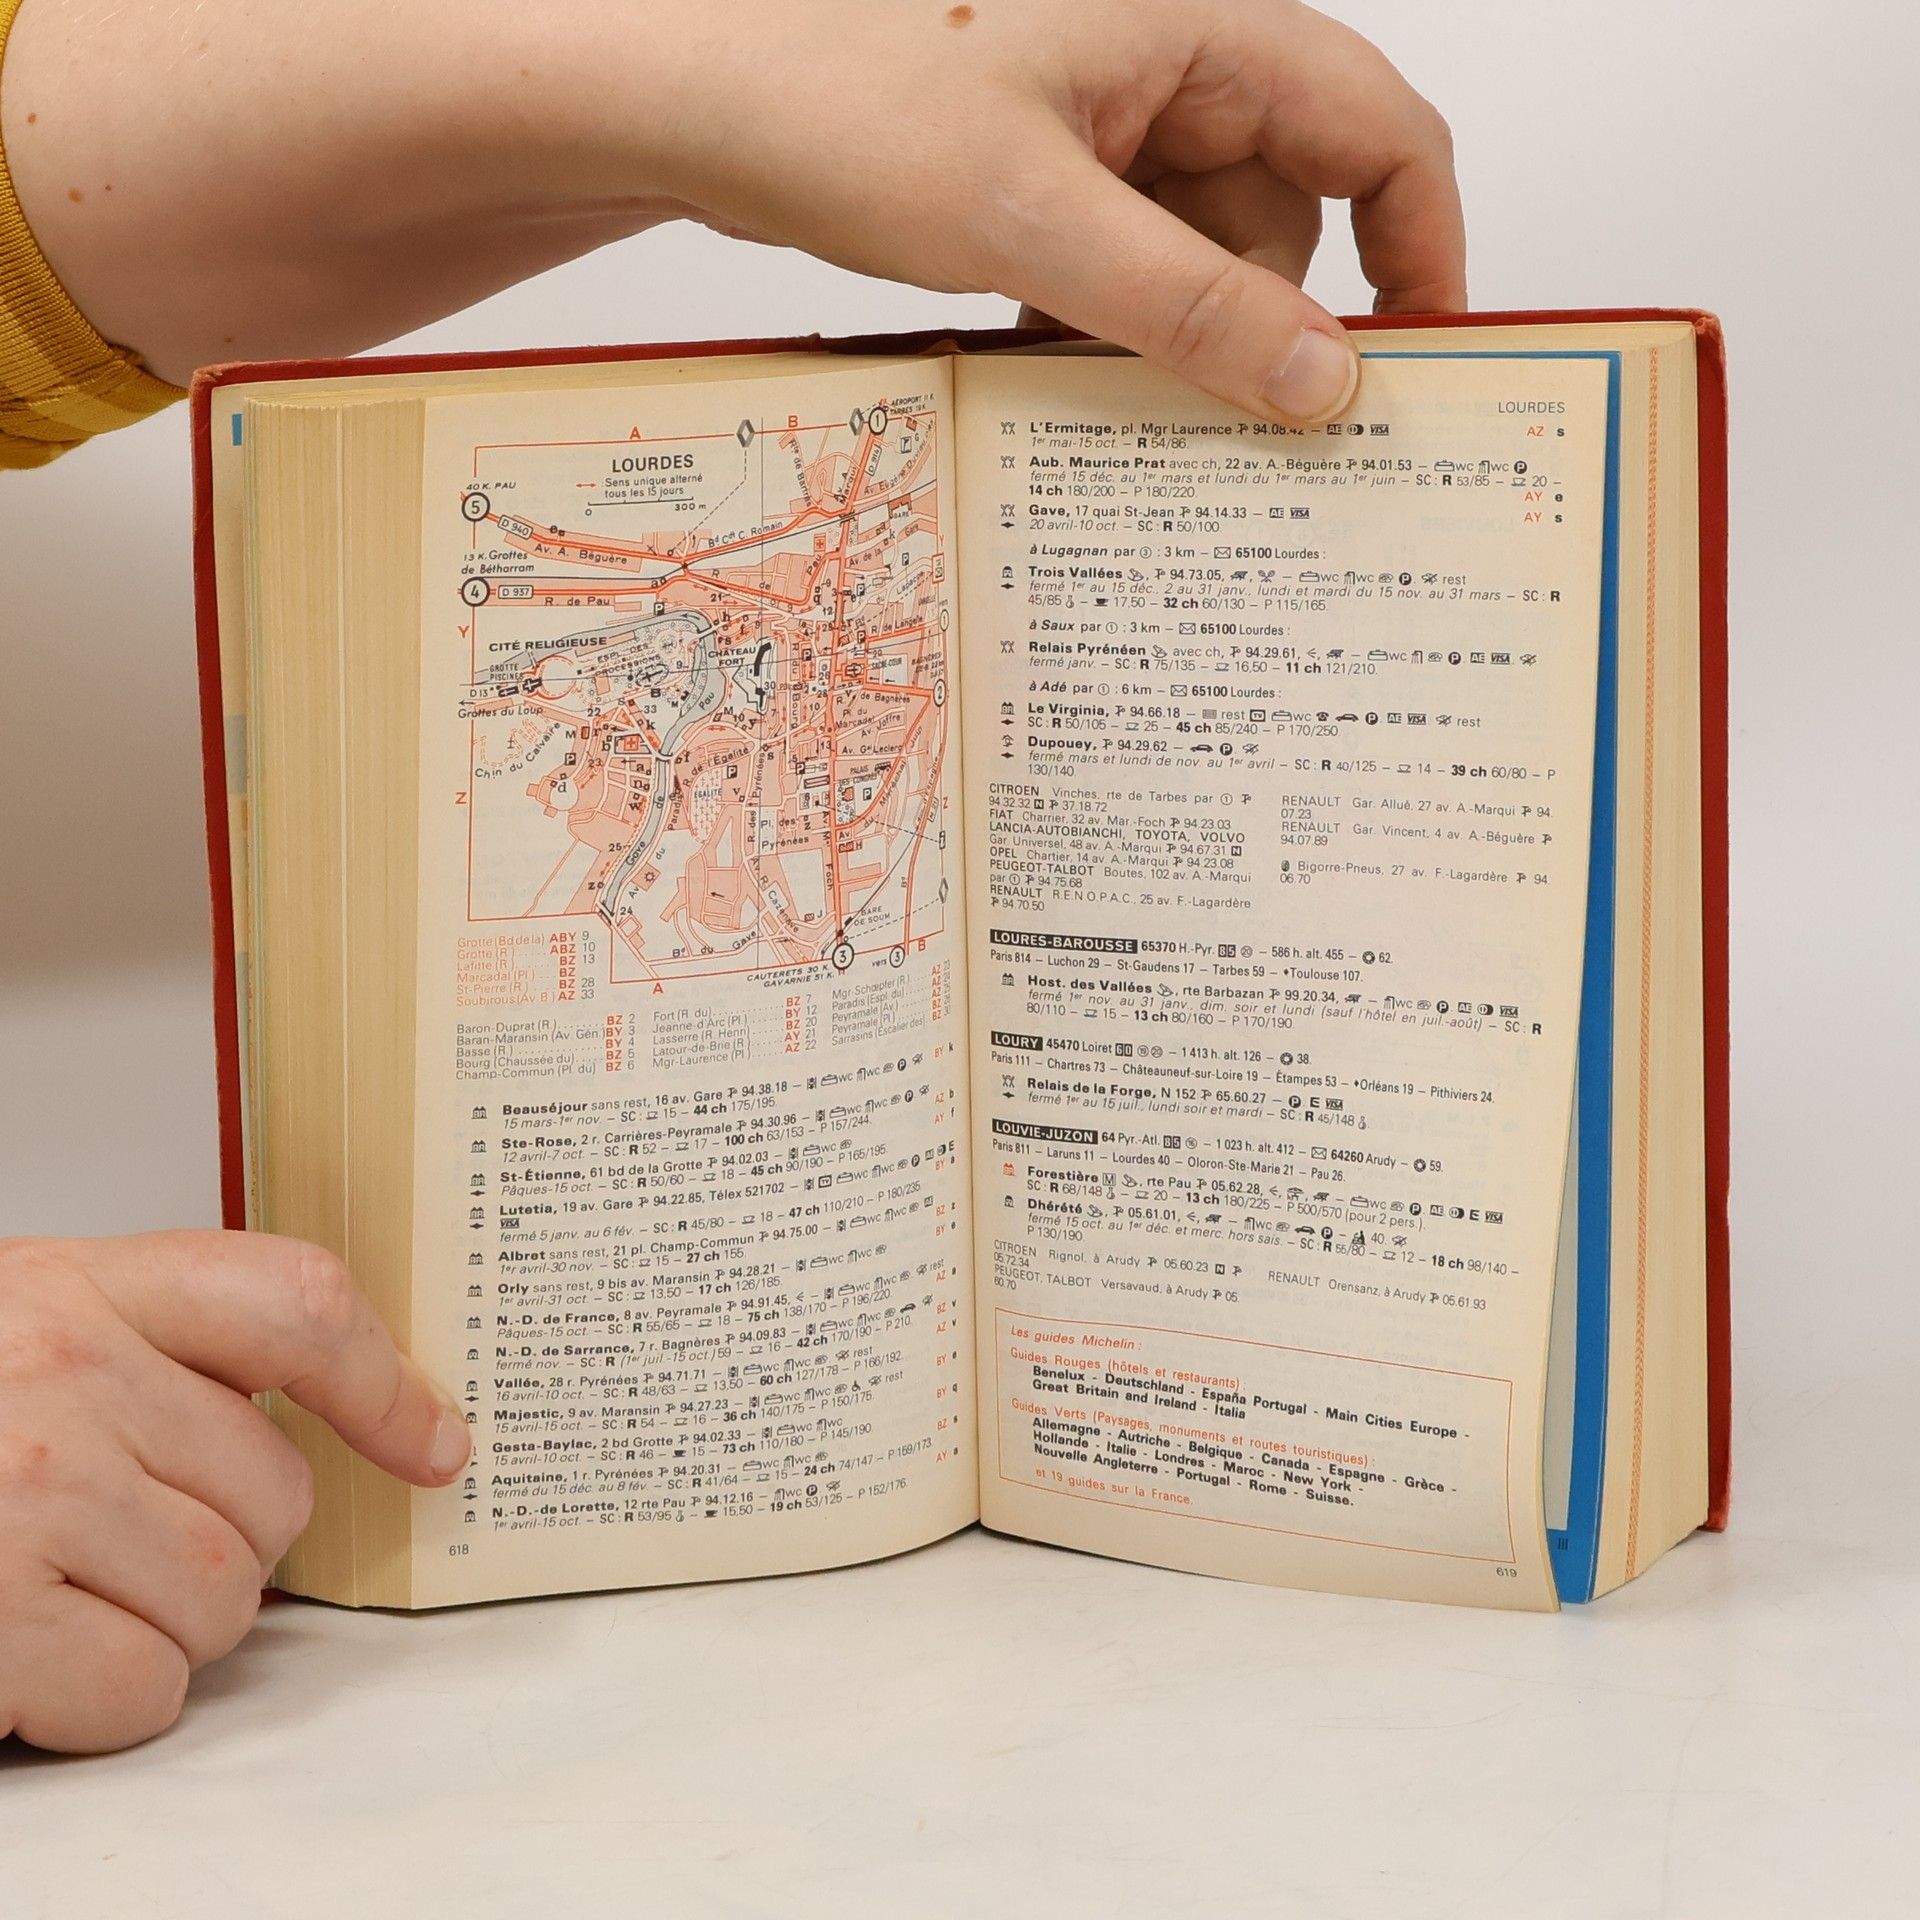 LOURDES
Sens unique alterné
tous les 15 jours
0 300 m
A
B
40 K. PAU
5
D 940
Av. A. Béguère
Bd Cdt C. Romain
13 K. Grottes
de Bétharram
4
D 937
R. de Pau
Y
CITÉ RELIGIEUSE
ESPL. DES
PROCESSIONS
CHÂTEAU
FORT
GROTTE
PISCINES
D 13
Grottes du Loup
Chin du Calvaire
Z
R. de l'Égalité
ÉGALITÉ
Pl. des
Pyrénées
PALAIS
DES CONGRÈS
Av. Gal Leclerc
R. de Bagnères
R. de Langelle
Bd du Gave
GARE
DE SOUM
3
vers 3
B
A
CAUTERETS 30 K.
GAVARNIE 51 K.
AÉROPORT 11 K.
TARBES 19 K.
1
D 914
2
Grotte (Bd de la) ABY 9
Grotte (R.) ABZ 10
Lafitte (R.) BZ 13
Marcadal (Pl.) BZ
St-Pierre (R.) BZ 28
Soubirous (Av. B.) AZ 33
Baron-Duprat (R.) BZ 2
Baran-Maransin (Av. Gén.) BY 3
Basse (R.) BY 4
Bourg (Chaussée du) BZ 5
Champ-Commun (Pl. du) BZ 6
Fort (R. du) BZ 7
Jeanne-d'Arc (Pl.) BY 12
Lasserre (R. Henri) BZ 20
Latour-de-Brie (R.) AY 21
Mgr-Laurence (Pl.) AZ 22
Mgr-Schœpfer (R.) AZ 23
Paradis (Espl. du) AZ
Peyramale (Av.) AZ
Peyramale (Pl.) BZ
Sarrasins (Escalier des) BZ 30
Beauséjour sans rest, 16 av. Gare 94.38.18 – wc wc BY k
15 mars-1er nov. – SC : 15 – 44 ch 175/195.
Ste-Rose, 2 r. Carrières-Peyramale 94.30.96 – wc wc AZ b
12 avril-7 oct. – SC : R 52 – 17 – 100 ch 63/153 – P 157/244.
St-Étienne, 61 bd de la Grotte 94.02.03 – wc wc AY f
Pâques-15 oct. – SC : R 50/60 – 18 – 45 ch 90/190 – P 165/195.
Lutetia, 19 av. Gare 94.22.85, Télex 521702 – wc wc AE E
VISA BY a
fermé 5 janv. au 6 fév. – SC : R 45/80 – 18 – 47 ch 110/210 – P 180/235.
Albret sans rest, 21 pl. Champ-Commun 94.75.00 – wc wc AE BZ z
1er avril-30 nov. – SC : 15 – 27 ch 155.
Orly sans rest, 9 bis av. Maransin 94.28.21 – wc wc BY e
1er avril-31 oct. – SC : 13,50 – 17 ch 126/185.
N.-D. de France, 8 av. Peyramale 94.91.45, – wc wc rest
Pâques-15 oct. – SC : R 55/65 – 18 – 75 ch 138/170 – P 196/220. AZ
N.-D. de Sarrance, 7 r. Bagnères 94.09.83 – wc wc BZ v
fermé nov. – SC : R (1er juil.-15 oct.) 59 – 16 – 42 ch 170/190 – P 210.
Vallée, 28 r. Pyrénées 94.71.71 – wc wc rest AZ v
16 avril-10 oct. – SC : R 48/63 – 13,50 – 60 ch 127/178 – P 166/192.
Majestic, 9 av. Maransin 94.27.23 – wc wc rest BY
15 avril-15 oct. – SC : R 54 – 16 – 36 ch 140/175 – P 150/175.
Gesta-Baylac, 2 bd Grotte 94.02.33 – wc wc BY q
15 avril-10 oct. – SC : R 46 – 15 – 73 ch 110/180 – P 145/190.
Aquitaine, 1 r. Pyrénées 94.20.31 – wc wc BZ s
fermé du 15 déc. au 8 fév. – SC : R 41/64 – 15 – 24 ch 74/147 – P 159/173.
N.-D.-de Lorette, 12 rte Pau 94.12.16 – wc P AY n
1er avril-15 oct. – SC : R 53/95 – 15,50 – 19 ch 53/125 – P 152/176.
618
LOURDES
L'Ermitage, pl. Mgr Laurence 94.08.42 – AE VISA AZ s
1er mai-15 oct. – R 54/86.
Aub. Maurice Prat avec ch, 22 av. A.-Béguère 94.01.53 – wc wc P
fermé 15 déc. au 1er mars et lundi du 1er mars au 1er juin – SC : R 53/85 – 20 –
14 ch 180/200 – P 180/220. AY e
Gave, 17 quai St-Jean 94.14.33 – AE VISA AY s
20 avril-10 oct. – SC : R 50/100.
à Lugagnan par 3 : 3 km – 65100 Lourdes :
Trois Vallées , 94.73.05, , – wc wc P. rest
fermé 1er au 15 déc., 2 au 31 janv., lundi et mardi du 15 nov. au 31 mars – SC : R
45/85 – 17,50 – 32 ch 60/130 – P 115/165.
à Saux par 1 : 3 km – 65100 Lourdes :
Relais Pyrénéen avec ch, 94.29.61, , – wc P. AE VISA.
fermé janv. – SC : R 75/135 – 16,50 – 11 ch 121/210.
à Adé par 1 : 6 km – 65100 Lourdes :
Le Virginia, 94.66.18 – rest TV wc P. AE VISA rest
SC : R 50/105 – 25 – 45 ch 85/240 – P 170/250.
Dupouey, 94.29.62 – P
fermé mars et lundi de nov. au 1er avril – SC : R 40/125 – 14 – 39 ch 60/80 – P
130/140.
CITROEN Vinches, rte de Tarbes par 1
94.32.32 N 37.18.72
FIAT Charrier, 32 av. Mar.-Foch 94.23.03
LANCIA-AUTOBIANCHI, TOYOTA, VOLVO
Gar. Universel, 48 av. A.-Marqui 94.67.31 N
OPEL Chartier, 14 av. A.-Marqui 94.23.08
PEUGEOT-TALBOT Boutes, 102 av. A.-Marqui
par 1 94.75.68
RENAULT R.E.N.O.P.A.C., 25 av. F.-Lagardère
94.70.50
RENAULT Gar. Allué, 27 av. A.-Marqui 94.
07.23
RENAULT Gar. Vincent, 4 av. A.-Béguère
94.07.89
Bigorre-Pneus, 27 av. F.-Lagardère 94.
06.70
LOURES-BAROUSSE 65370 H.-Pyr. 85 20 – 586 h. alt. 455 – 62.
Paris 814 – Luchon 29 – St-Gaudens 17 – Tarbes 59 – ♦Toulouse 107.
Host. des Vallées , rte Barbazan 99.20.34, – wc P. AE VISA
fermé 1er nov. au 31 janv., dim. soir et lundi (sauf l'hôtel en juil.-août) – SC : R
80/110 – 15 – 13 ch 80/160 – P 170/190.
LOURY 45470 Loiret 60 19 20 – 1 413 h. alt. 126 – 38.
Paris 111 – Chartres 73 – Châteauneuf-sur-Loire 19 – Étampes 53 – ♦Orléans 19 – Pithiviers 24.
Relais de la Forge, N 152 65.60.27 – P. E VISA
fermé 1er au 15 juil., lundi soir et mardi – SC : R 45/148
LOUVIE-JUZON 64 Pyr.-Atl. 85 16 – 1 023 h. alt. 412 – 64260 Arudy – 59.
Paris 811 – Laruns 11 – Lourdes 40 – Oloron-Ste-Marie 21 – Pau 26.
Forestière M , rte Pau 05.62.28, , – wc P. AE E VISA
SC : R 68/148 – 20 – 13 ch 180/225 – P 500/570 (pour 2 pers.).
Dhérété , 05.61.01, , – wc P – 40.
fermé 15 oct. au 1er déc. et merc. hors sais. – SC : R 55/80 – 12 – 18 ch 98/140 –
P 130/190.
CITROEN Rignol, à Arudy 05.60.23 N
05.72.34
PEUGEOT, TALBOT Versavaud, à Arudy 05.
60.70
RENAULT Orensanz, à Arudy 05.61.93
Les guides Michelin :
Guides Rouges (hôtels et restaurants) :
Benelux - Deutschland - España Portugal - Main Cities Europe -
Great Britain and Ireland - Italia
Guides Verts (Paysages, monuments et routes touristiques) :
Allemagne - Autriche - Belgique - Canada - Espagne - Grèce -
Hollande - Italie - Londres - Maroc - New York -
Nouvelle Angleterre - Portugal - Rome - Suisse.
et 19 guides sur la France.
619
III